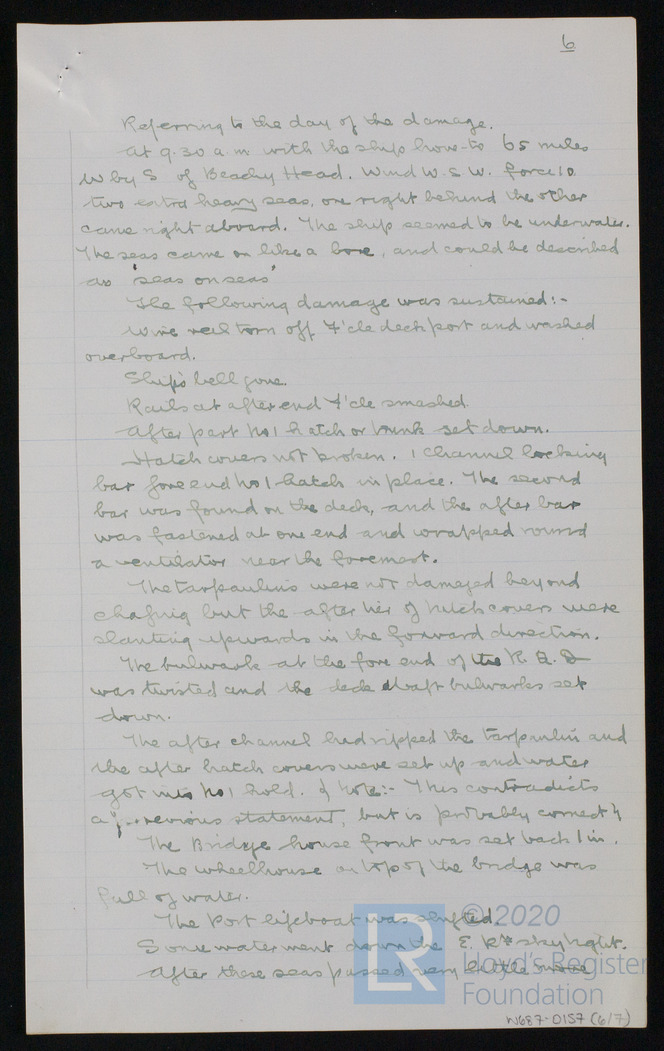 6
Referring to the day of the damage.
At 9.30 a.m with the ship hove-to 65 miles
W by S of Beachy Head. Wind W.S.W. force 10
two extra heavy seas, one right behind the other
came right aboard. The ship seemed to be underwater.
The seas came on like a bore, and could be described
as 'seas on seas'
The following damage was sustained:-
Wire reel torn off F'cle deck port and washed
overboard.
Ship's bell gone.
Rails at after end F'cle smashed.
After part No 1 hatch or trunk set down.
Hatch covers not broken. 1 channel locking
bar fore end No 1 hatch in place. The second
bar was found on the deck, and the after bar
was fastened at one end and wrapped round
a ventilator near the foremast.
The tarpaulins were not damaged beyond
chafing but the after tier of hatch covers were
slanting upwards in the forward direction.
The bulwark at the fore end of the R.Q.D
was twisted and the deck abaft bulwarks set
down.
The after channel had ripped the tarpaulin and
the after hatch covers were set up and water
got into No 1 hold. Note:- This contradicts
a previous statement, but is probably correct
The Bridge house front was set back 1 in.
The wheelhouse on top of the bridge was
full of water.
The Port lifeboat was shifted.
Some water went down the E. Rm skylight.
After these seas passed very little more
© 2020
LR
Lloyd's Register
Foundation
W687-0157 (6/7)